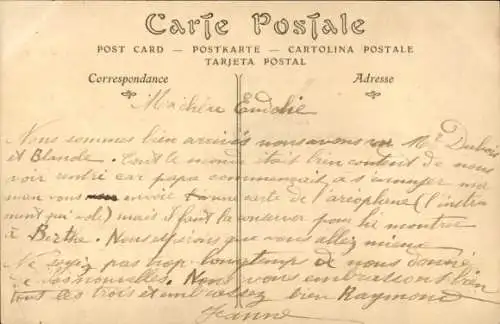 Carte Postale
POST CARD — POSTKARTE — CARTOLINA POSTALE
TARJETA POSTAL
Correspondance
Adresse
Ma chère Eudolie
Nous sommes bien arrivés nous avons vu Mr Dubois
et Blande. Tout le monde était bien content de nous
voir rentré car papa commençait à s'ennuyer ma
man vous envoie une carte de l'aréoplane (l'instru
ment qui vole) mais il faut la conserver pour la montrer
à Berthe. Nous espérons que vous allez mieux
Ne soyez pas trop longtemps de nous donné
de vos nouvelles. Nous vous embrassons bien
tous les trois et embrassez bien Raymond
Jeanne